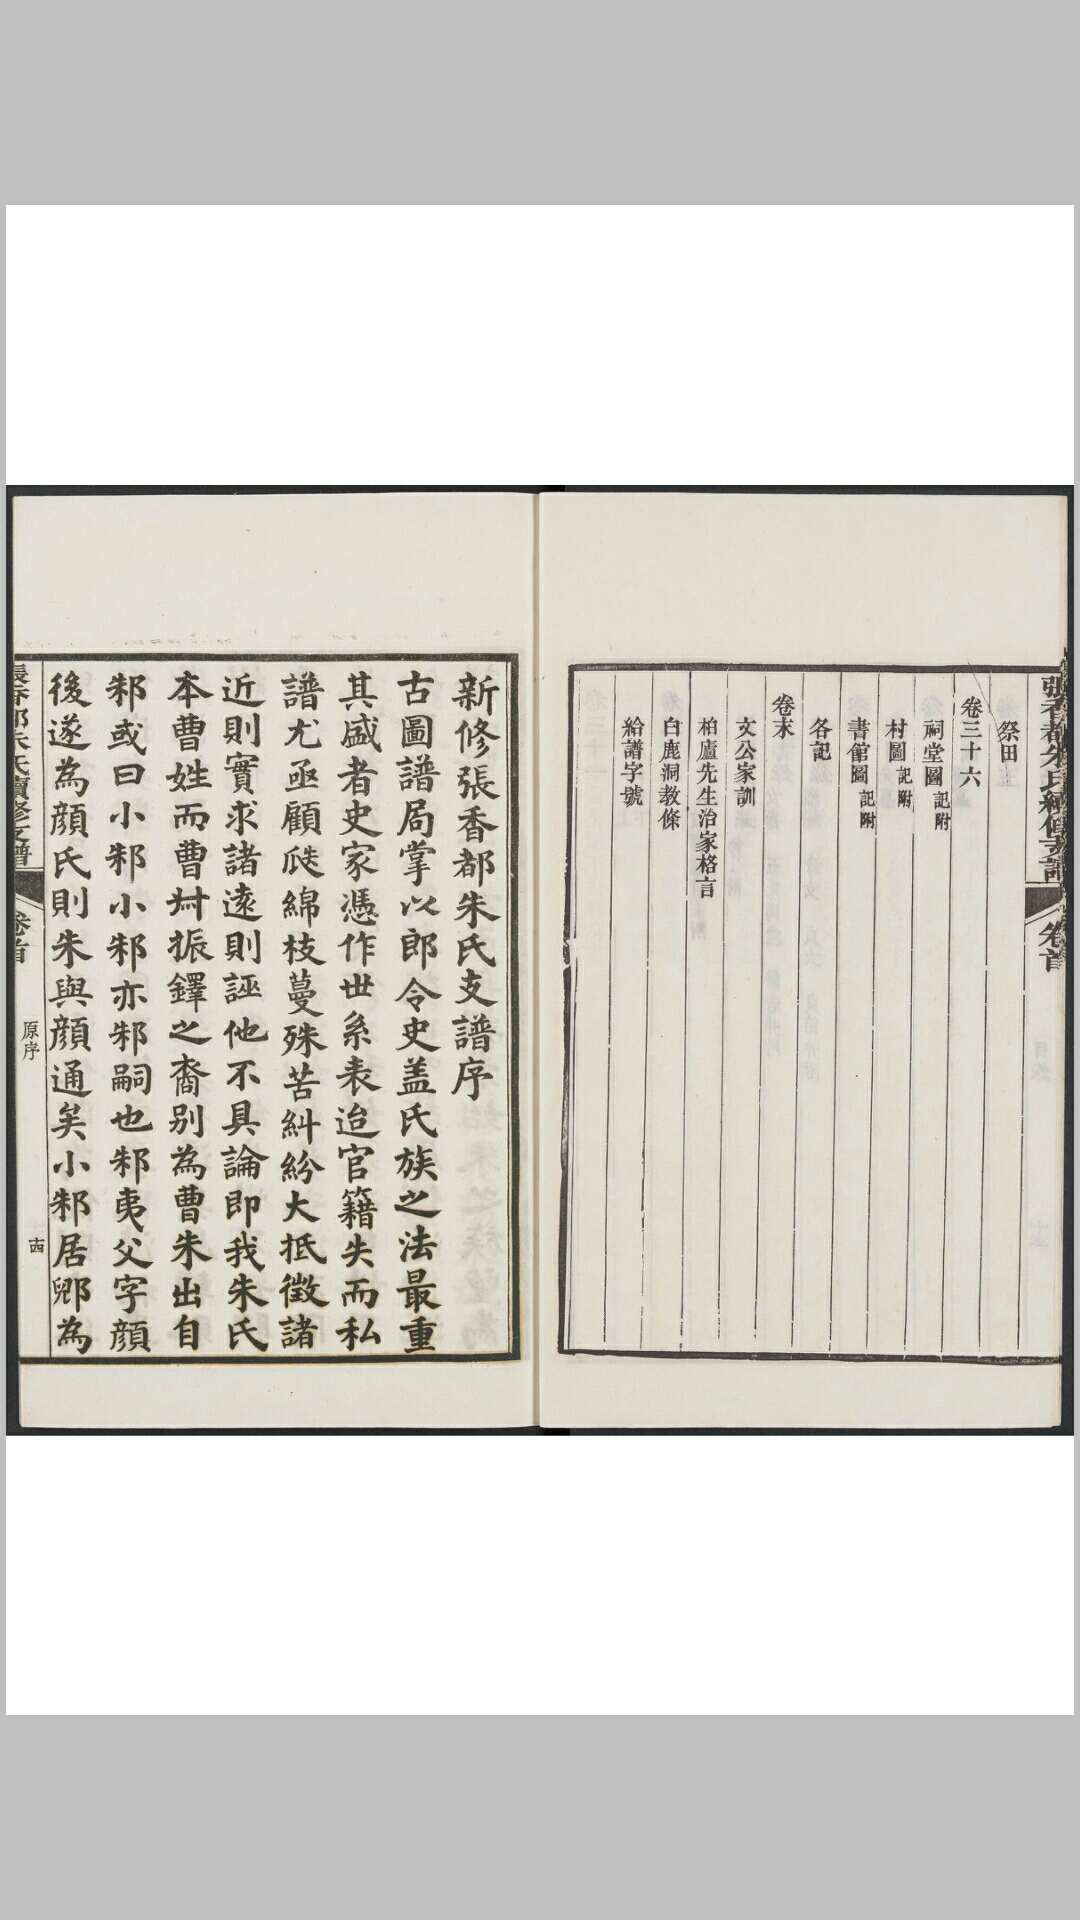 張香都朱氏續修支譜
卷首
祭田
卷三十六
祠堂圖 記附
村圖 記附
書館圖 記附
各記
卷末
文公家訓
柏廬先生治家格言
白鹿洞教條
給譜字號
新修張香都朱氏支譜序
古圖譜局掌以郎令史盖氏族之法最重
其盛者史家憑作世系表迨官籍失而私
譜尤亟顧瓞綿枝蔓殊苦糾紛大抵徵諸
近則實求諸遠則誣他不具論即我朱氏
本曹姓而曹叔振鐸之裔别為曹朱出自
邾或曰小邾小邾亦邾嗣也邾夷父字顔
後遂為顔氏則朱與顔通矣小邾居郳為
張香都朱氏續修支譜
卷首
原序
十四